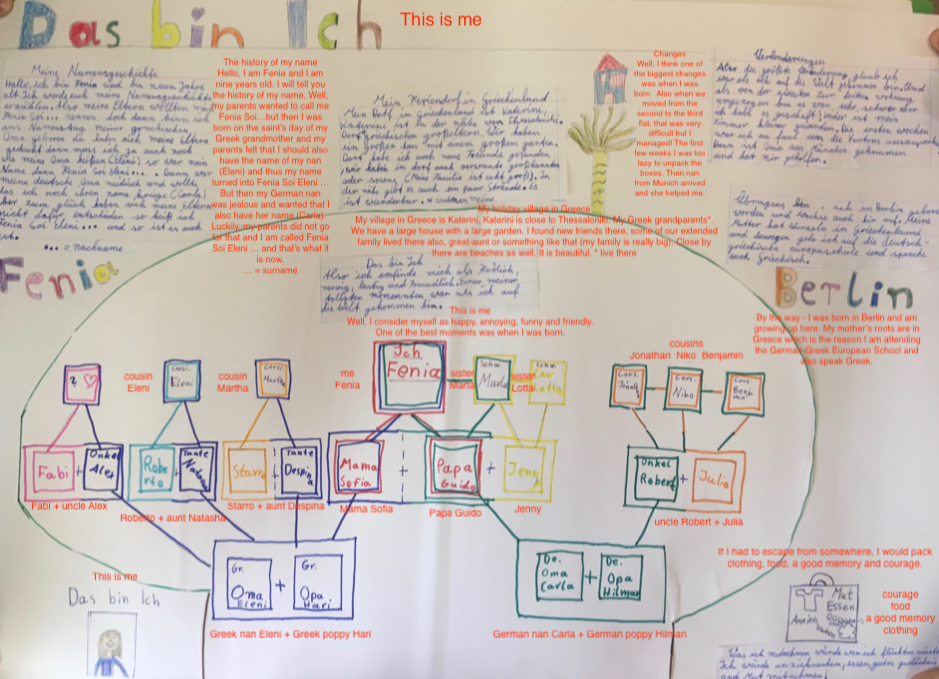 Das bin Ich
This is me
Meine Namensgeschichte
Hallo, ich bin Fenia und bin neun Jahre
alt. Ich werde euch meine Namensgeschichte
erzählen. Also meine Eltern wollten mich
Fenia Soi... nennen doch dann binn ich
am Namenstag meiner griechischen
Oma
dacht dann muss ich ja auch noch
wie meine Oma heißen (Eleni) so war mein
Name dann Fenia Soi Eleni.... Dann war
meine deutsche Oma neidisch und wollte
das ich noch ihren name kriege (Carla)
aber zum glück haben sich meine Eltern
nicht dafür entschieden so heiß ich
Fenia Soi Eleni... und so ist es auch
gut.
... = nachname
The history of my name
Hello, I am Fenia and I am
nine years old. I will tell you
the history of my name. Well,
my parents wanted to call me
Fenia Soi...but then I was
born on the saint's day of my
Greek grandmother and my
parents felt that I should also
have the name of my nan
(Eleni) and thus my name
turned into Fenia Soi Eleni ...
But then my German nan
was jealous and wanted that I
also have her name (Carla).
Luckily, my parents did not go
for that and I am called Fenia
Soi Eleni ... and that's what it
is now.
... = surname
Mein Feriendorf in Griechenland
Mein Dorf in Griechenland ist Katerini.
Katerini ist in der nähe von Thessaloniki.
Meine griechischen großeltern. Wir haben
ein großes haus mit einem großen garten.
Dort habe ich auch neue Freunde gefunden,
wir haben im dorf auch verwandte großtanten
oder sowas, (Meine Familie ist echt groß). In
der nähe gibt es auch ein paar Strände. Es
ist wunderbar. * wohnen meine
My holiday village in Greece
My village in Greece is Katerini, Katerini is close to Thessaloniki. My Greek grandparents*.
We have a large house with a large garden. I found new friends there, some of our extended
family lived there also, great-aunt or something like that (my family is really big). Close by
there are beaches as well. It is beautiful. * live there
Changes
Well, I think one of
the biggest changes
was when I was
born. Also when we
moved from the
second to the third
flat, that was very
difficult but I
managed! The first
few weeks I was too
lazy to unpack the
boxes. Then nan
from Munich arrived
and she helped me.
Veränderungen
Also die größte veränderung, glaub ich
war als ich auf die Welt gekommen bin. Und
als wir von der zweiten zur dritten wohnung
umgezogen bin es war sehr schwer aber
ich habs geschafft! leider ist mein
zimmer kleiner geworden. Die ersten wochen
war ich zu faul um die Kartons auszupacken
Dann ist Oma aus München gekommen
und hat mir geholfen.
Übrigens bin ich in Berlin geboren
worden und wachse auch hier auf. Meine
Mutter hat Wurzeln in Griechenland
und deswegen geh ich auf die deutsch-
griechische europaschule und spreche
auch griechisch.
Fenia
Berlin
By the way - I was born in Berlin and am
growing up here. My mother's roots are in
Greece which is the reason I am attending
the German-Greek European School and
also speak Greek.
Das bin Ich
Also ich empfinde mich als fröhlich,
nervig, lustig und freundlich. Einer meiner
tollsten momenten war als ich auf
die welt gekommen bin.
This is me
Well, I consider myself as happy, annoying, funny and friendly.
One of the best moments was when I was born.
? ♡
cousin
Eleni
Cous.
Eleni
cousin
Martha
Cous.
Martha
me
Fenia
Ich
Fenia
sister
Marla
Schw.
Marla
sister
Lotta
Schw.
Lotta
cousins
Jonathan Niko Benjamin
Cous.
Jonathan
Cous.
Niko
Cous.
Benjamin
Fabi + Onkel Alex
Roberto + Tante Natasa
Starro + Tante Despina
Mama Sofia + Papa Guido + Jenny
Onkel Robert + Julia
Fabi + uncle Alex
Roberto + aunt Natasha
Starro + aunt Despina
Mama Sofia
Papa Guido
Jenny
uncle Robert + Julia
Gr. Oma Eleni + Gr. Opa Hari
De. Oma Carla + De. Opa Hilmar
Greek nan Eleni + Greek poppy Hari
German nan Carla + German poppy Hilman
This is me
Das bin Ich
If I had to escape from somewhere, I would pack
clothing, food, a good memory and courage.
Mut
Essen
courage
food
a good memory
clothing
Was ich mitnehmen würde wen ich flüchten müsste
Ich würde anziehsachen, essen, gutes gedächtnis
und Mut mitnehmen!